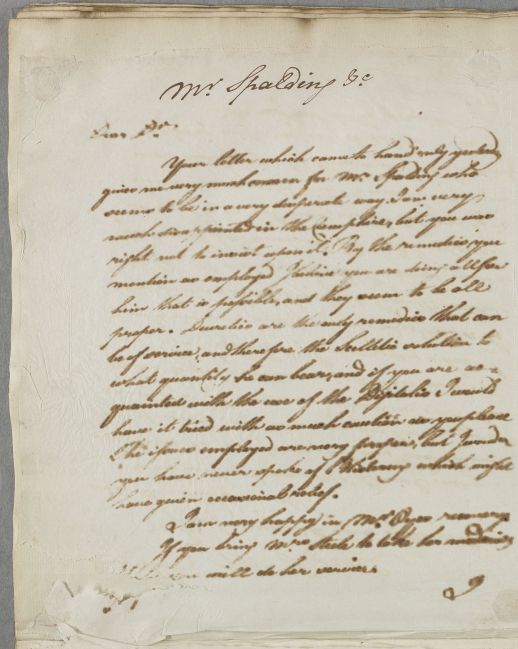 Mr. Spalding &c
Dear Sr.
Your letter which came to hand only yesterday
gives me very much concern for Mr. Spalding who
seems to be in a very desperate way. I am very
much disappointed in the Camphire, but you was
right not to insist upon it. By the remedies you
mention as employed I believe you are doing all for
him that is possible, and they seem to be all
proper. Diuretics are the only remedies that can
be of service, and therefore the Scillitic solution to
what quantity he can bear, and if you are ac-
quainted with the use of the Digitalis I would
have it tried with as much caution as you please
The issues employed are very proper, but I wonder
you have never spoke of Blistering which might
have given occasional relief.
I am very happy in Mrs. recovery
If you bring Mrs. Steele to take her medicines
will do her service.